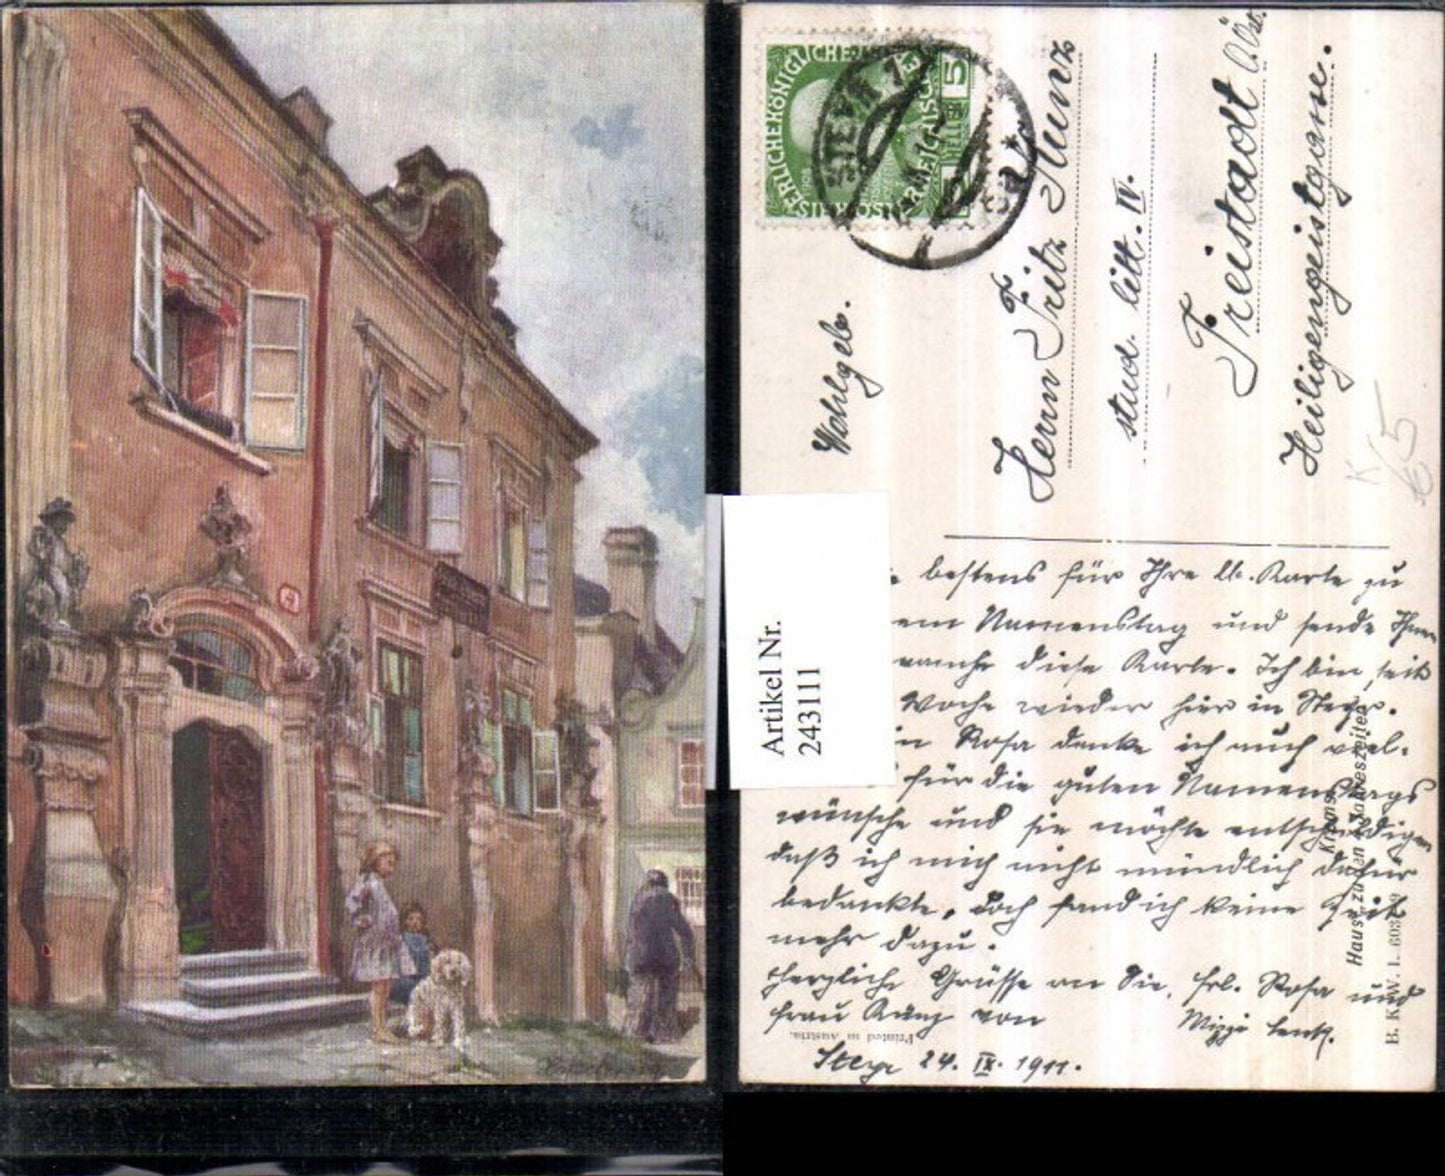 KAISERLICHEKÖNIGLICHE
ÖSTERREICHISCHE
5
HELLER
STEYR 1
Wohlgeb.
Herrn Fritz Kunz
stud. litt. IV.
Freistadt O. Öst.
Heiligengeistgasse.
K
€5
Artikel Nr.
243111
bestens für Ihre lb. Karte zu
Namenstag und sende Ihnen
diese Karte. Ich bin seit
Woche wieder hier in Steyr.
Rosa danke ich auch viel-
für die guten Namenstags
wünsche und sie möchte entschuldigen
daß ich mich nicht mündlich dafür
bedankte, doch fand ich keine Zeit
mehr dazu.
Herzliche Grüsse an Sie, Frl. Rosa und
Frau Kunz von
Mizzi Lentz.
Steyr 24. IX. 1911.
Krems.
Haus zu den 4 Jahreszeiten
B. K. W. I.
Printed in Austria.